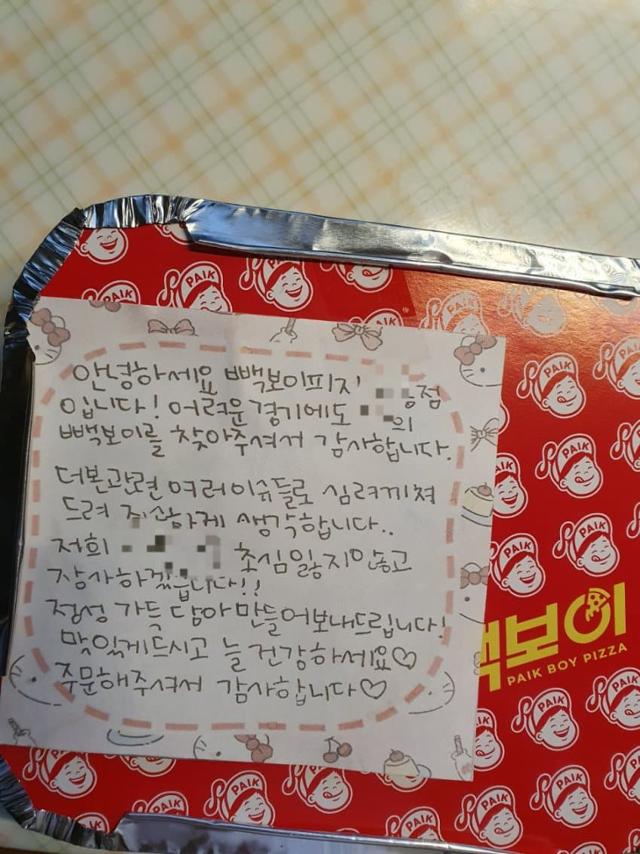 안녕하세요 빽보이피자 점
입니다! 어려운 경기에도 의
빽보이를 찾아주셔서 감사합니다.
더본관련 여러이슈들로 심려끼쳐
드려 죄산하게 생각합니다..
저희 초심잃지않고
장사하겠습니다!!
정성 가득 담아만들어보내드립니다!
맛있게드시고 늘 건강하세요♡
주문해주셔서 감사합니다♡
백보이
PAIK BOY PIZZA
PAIK
PAIK
PAIK
PAIK
PAIK
PAIK
PAIK
PAIK
PAIK
PAIK
PAIK
PAIK
PAIK
PAIK